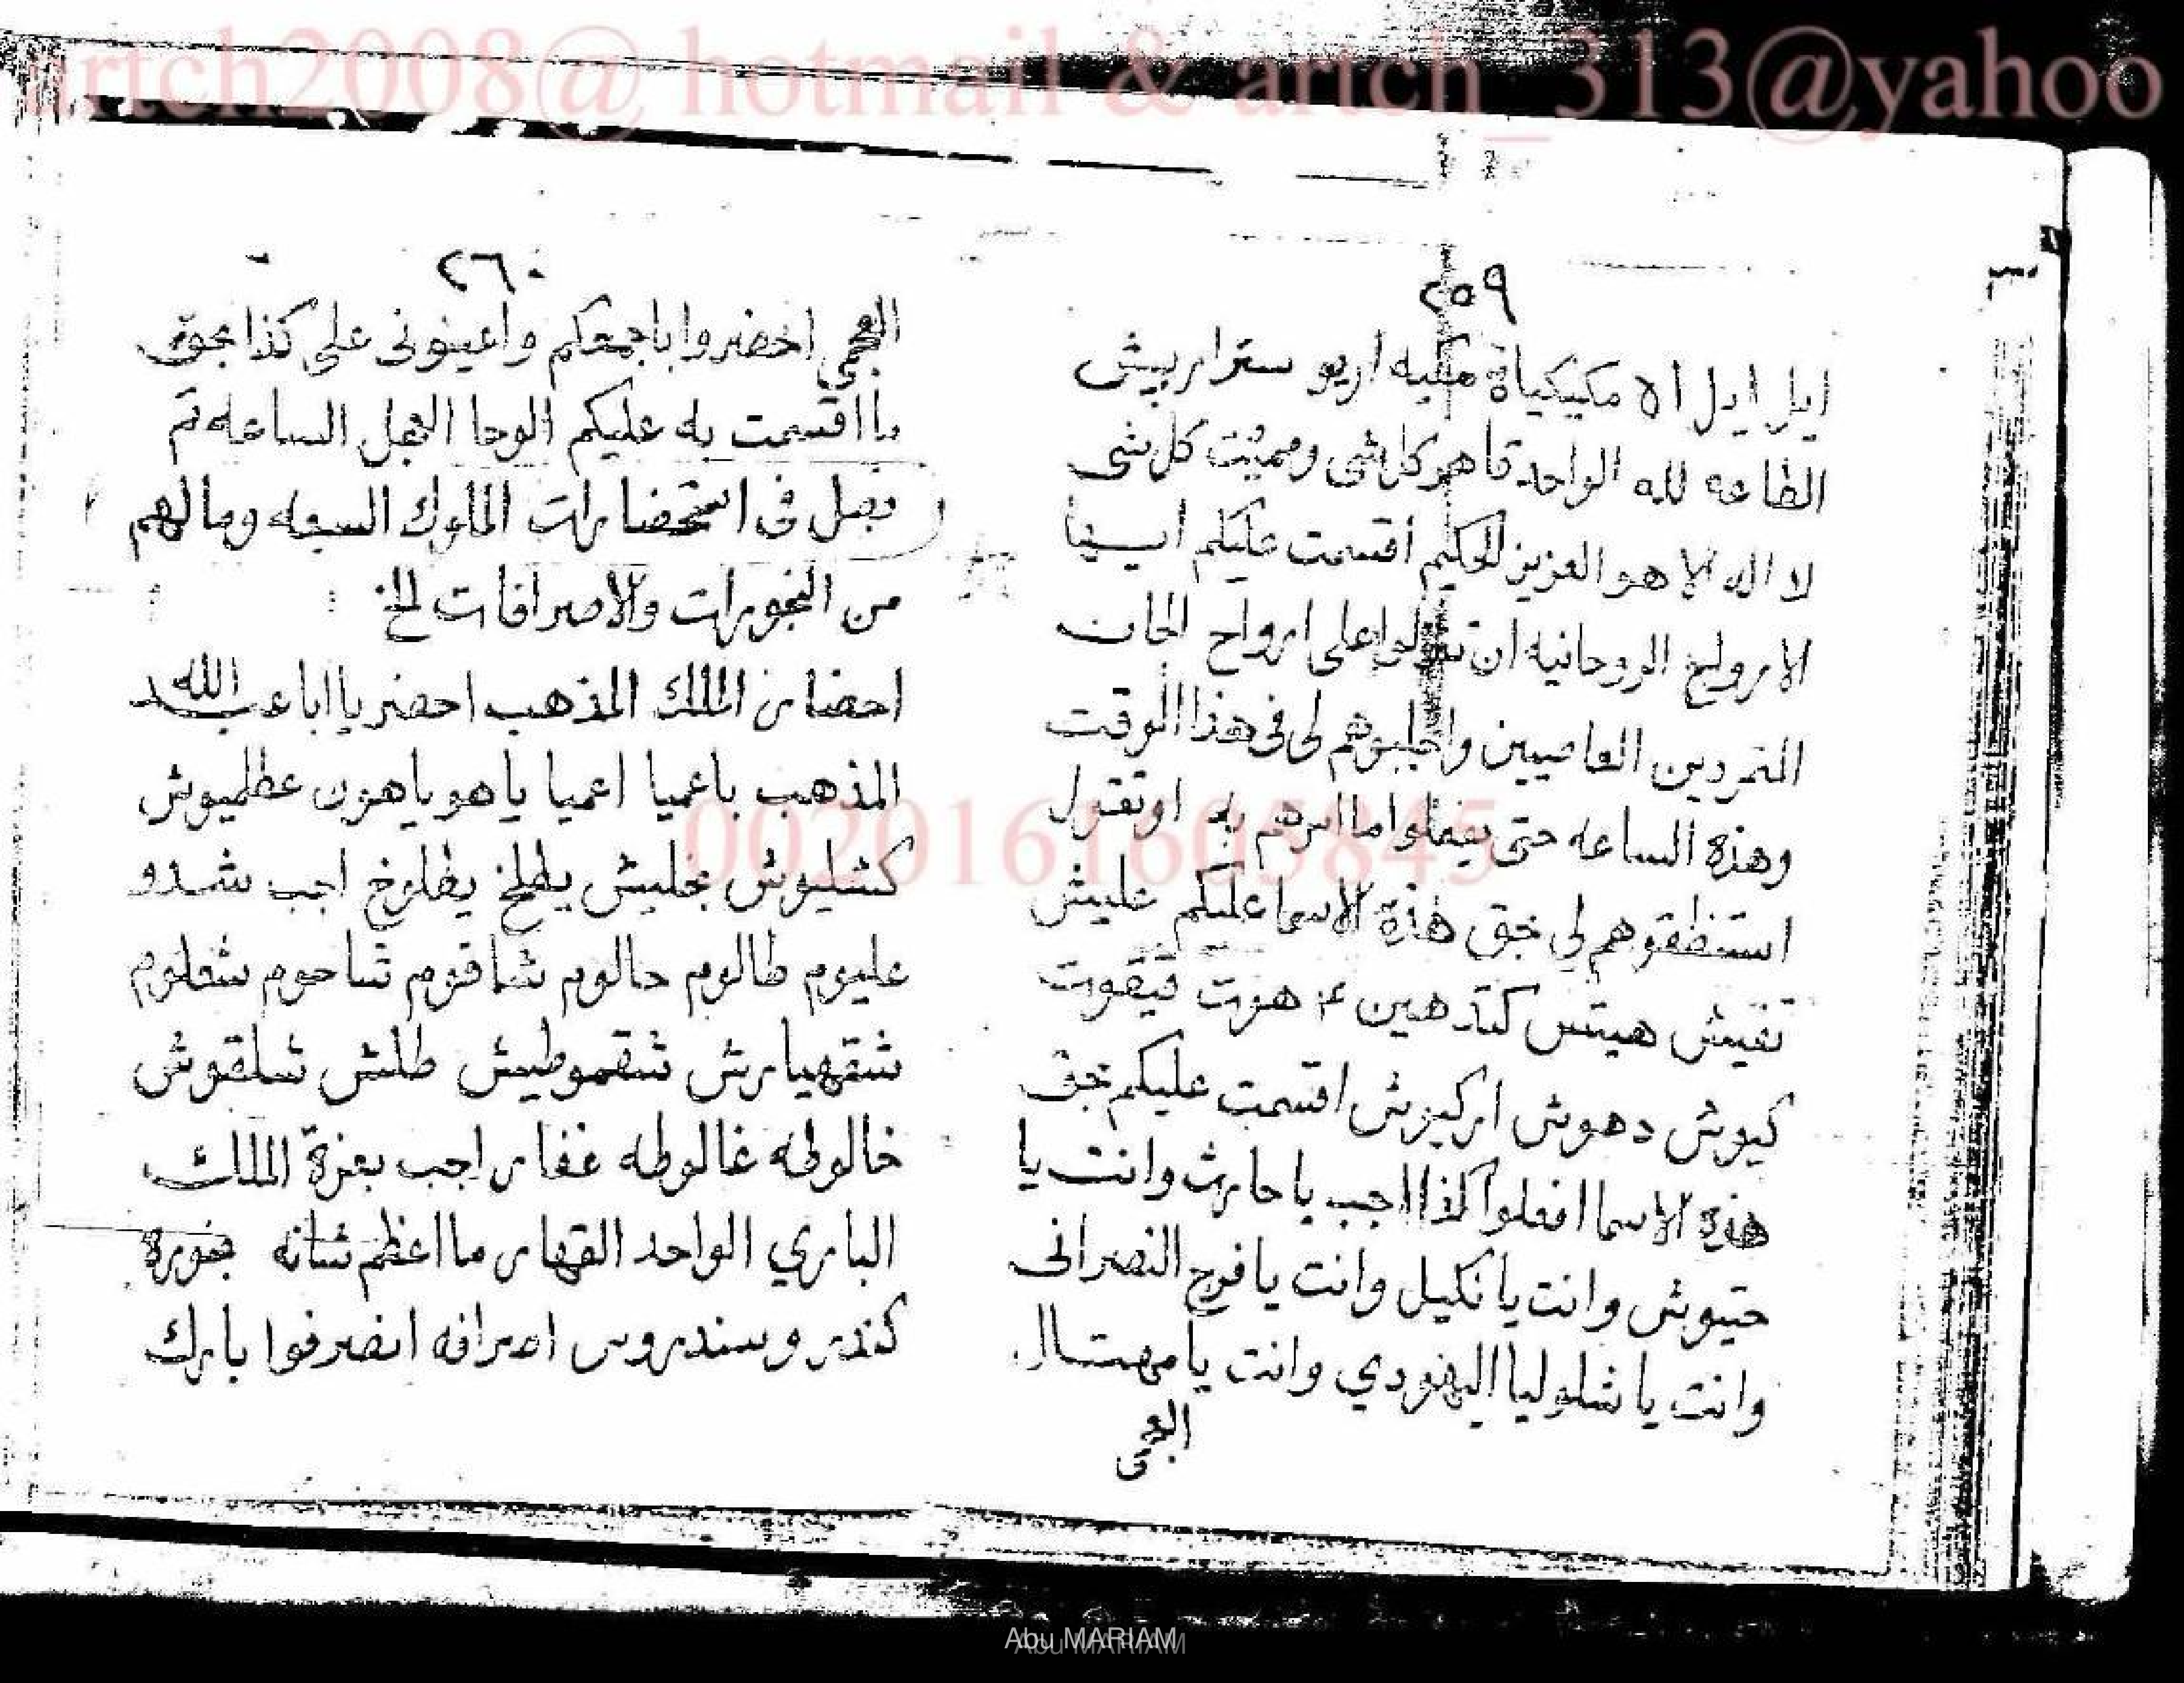 artch2008@ hotmail & artch_313@yahoo
٢٥٩
ايل ايل اه مكيكياة مكيه اريو ستراربيش
الطاعه لله الواحد قاهر كل شى ومميت كل شى
لا اله الا هو العزيز الحكيم أقسمت عليكم ايسها
الارواح الروحانيه ان على ارواح الجان
المتمردين العاصيين واجلبوهم لى فى هذا الوقت
وهذة الساعه حتى يفعلوا ما امرهم به اوتقول
استنطقوهم لي بحق هذة الاسما عليكم عليش
تفيش هيتس كتدهين ٢ هوت قيقوت
كيوش دهوش اركيوش اقسمت عليكم بحق
هذه الاسما افعلوا كذا اجب يا حارث وانت يا
حتيوش وانت يا نكيل وانت يا فرج النصرانى
وانت يا شلوليا اليهودي وانت يا مهتال
العجمى
٢٦٠
العجمي احضروا باجمعكم واعينونى على كذا بحق
ما اقسمت به عليكم الوحا العجل الساعه تم
فصل فى استحضارات الملوك السبعه ومالهم
من البخورات والاصرافات الخ
احضار الملك المذهب احضر يا ابا عبد الله
المذهب باعميا اعميا ياهو ياهون عطلميوش
كشليوش بجليش يطلخ يطلوخ اجب شدو
عليوم طالوم حالوم شاقوم شاحوم شعلوم
شقهيارش شقموطيش طلش شلقوش
خالوطه غالوطه غفار اجب بعزة الملك
الباري الواحد القهار ما اعظم شانه بخوره
كندر وسندروس اصرافه انصرفوا بارك
0020161605845
Abu MARIAM